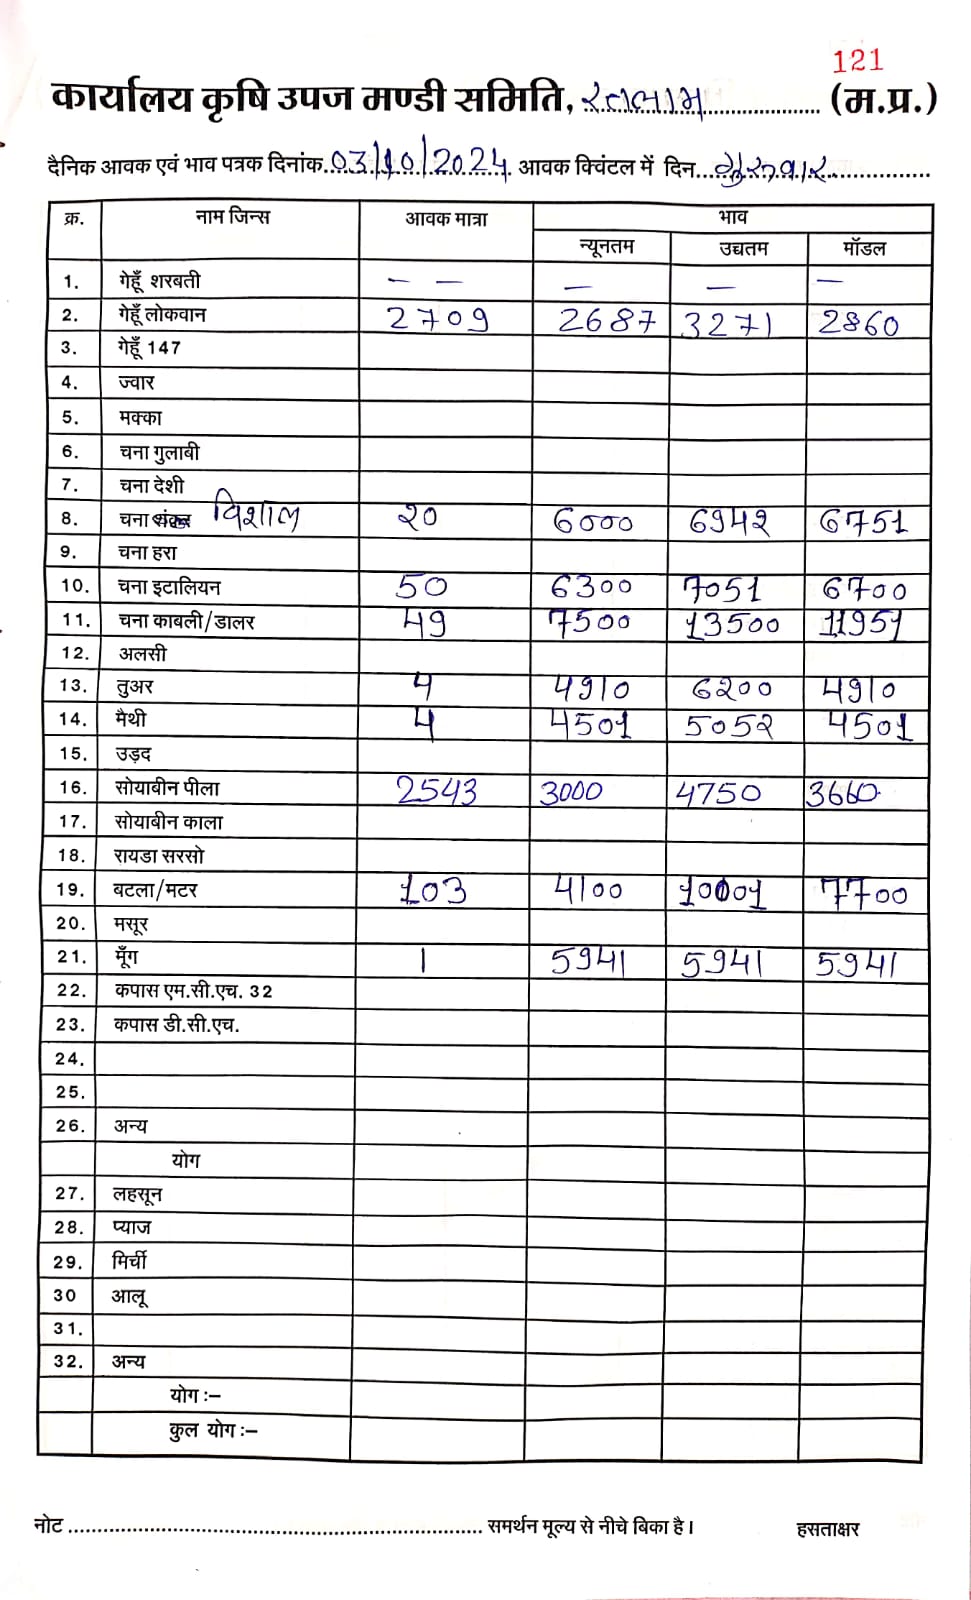 121
कार्यालय कृषि उपज मण्डी समिति, रतलाम (म.प्र.)
दैनिक आवक एवं भाव पत्रक दिनांक 03/10/2024 आवक क्विंटल में दिन गुरुवार
क्र. नाम जिन्स आवक मात्रा भाव
न्यूनतम उच्चतम मॉडल
1. गेहूँ शरबती — — — — —
2. गेहूँ लोकवान 2709 2687 3271 2860
3. गेहूँ 147
4. ज्वार
5. मक्का
6. चना गुलाबी
7. चना देशी
8. चना विशाल २0 6000 694२ 6751
9. चना हरा
10. चना इटालियन 50 6300 7051 6700
11. चना काबली/डालर 49 7500 13500 11951
12. अलसी
13. तुअर 4 4910 6२00 4910
14. मैथी 4 4501 505२ 4501
15. उड़द
16. सोयाबीन पीला 2543 3000 4750 3660
17. सोयाबीन काला
18. रायडा सरसो
19. बटला/मटर 103 4100 10001 7700
20. मसूर
21. मूँग 1 5941 5941 5941
22. कपास एम.सी.एच. 32
23. कपास डी.सी.एच.
24.
25.
26. अन्य
योग
27. लहसून
28. प्याज
29. मिर्ची
30 आलू
31.
32. अन्य
योग :–
कुल योग :–
नोट ........ समर्थन मूल्य से नीचे बिका है। हसताक्षर